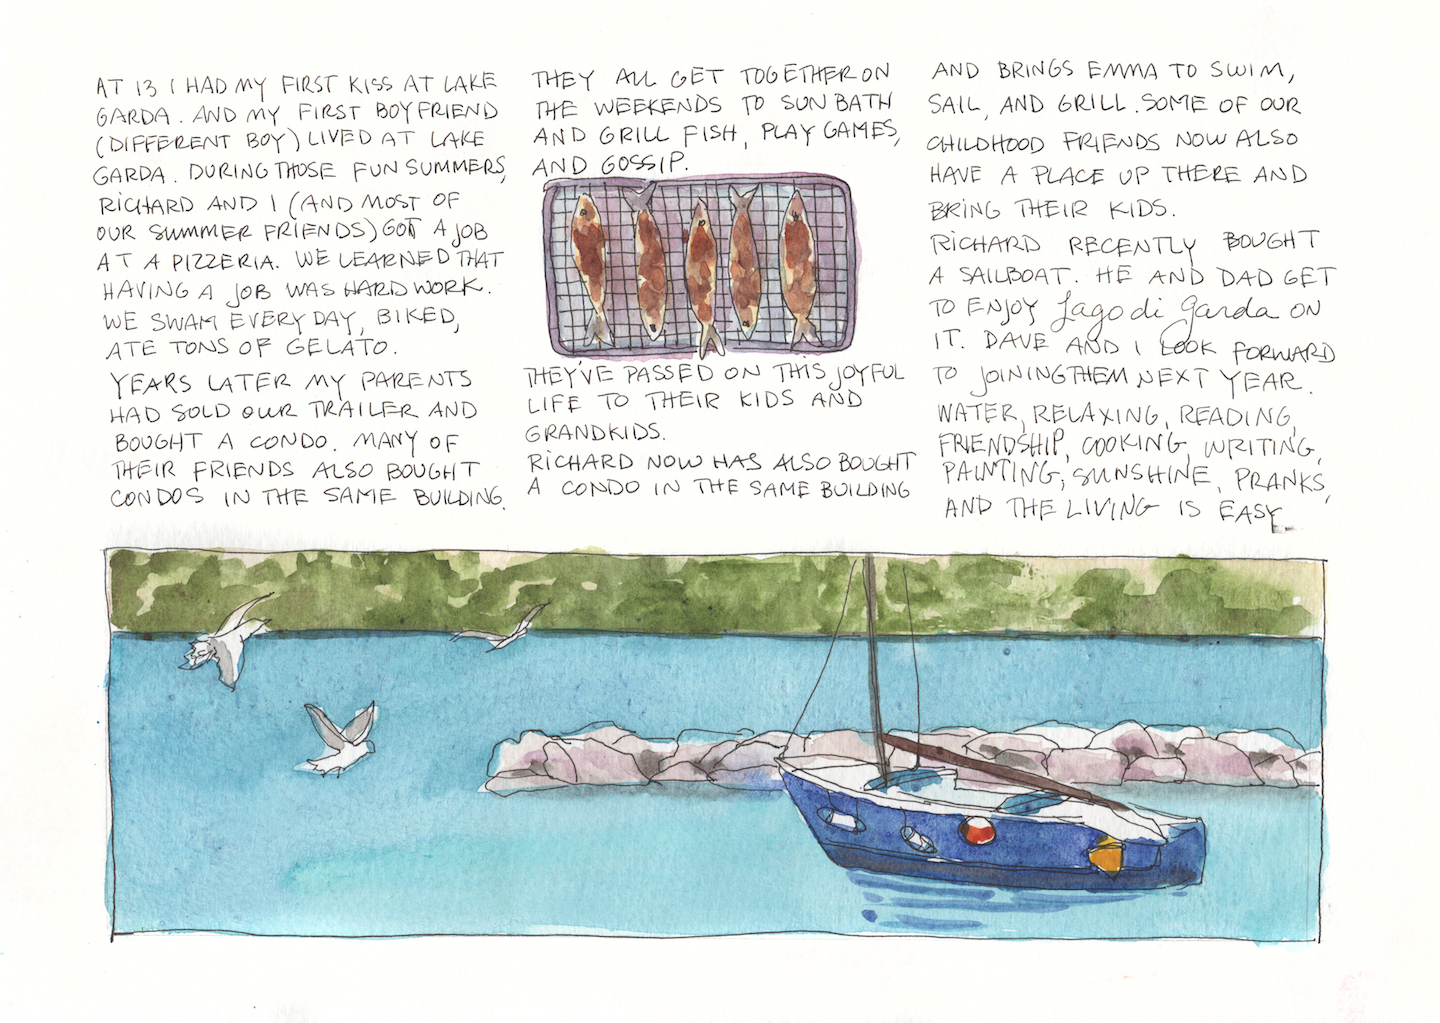 AT 13 I HAD MY FIRST KISS AT LAKE
GARDA. AND MY FIRST BOYFRIEND
(DIFFERENT BOY) LIVED AT LAKE
GARDA. DURING THOSE FUN SUMMERS,
RICHARD AND I (AND MOST OF
OUR SUMMER FRIENDS) GOT A JOB
AT A PIZZERIA. WE LEARNED THAT
HAVING A JOB WAS HARD WORK.
WE SWAM EVERY DAY, BIKED,
ATE TONS OF GELATO.
YEARS LATER MY PARENTS
HAD SOLD OUR TRAILER AND
BOUGHT A CONDO. MANY OF
THEIR FRIENDS ALSO BOUGHT
CONDOS IN THE SAME BUILDING.
THEY ALL GET TOGETHER ON
THE WEEKENDS TO SUN BATH
AND GRILL FISH, PLAY GAMES,
AND GOSSIP.
THEY'VE PASSED ON THIS JOYFUL
LIFE TO THEIR KIDS AND
GRANDKIDS.
RICHARD NOW HAS ALSO BOUGHT
A CONDO IN THE SAME BUILDING
AND BRINGS EMMA TO SWIM,
SAIL, AND GRILL. SOME OF OUR
CHILDHOOD FRIENDS NOW ALSO
HAVE A PLACE UP THERE AND
BRING THEIR KIDS.
RICHARD RECENTLY BOUGHT
A SAILBOAT. HE AND DAD GET
TO ENJOY Lago di Garda ON
IT. DAVE AND I LOOK FORWARD
TO JOINING THEM NEXT YEAR.
WATER, RELAXING, READING,
FRIENDSHIP, COOKING, WRITING,
PAINTING, SUNSHINE, PRANKS,
AND THE LIVING IS EASY